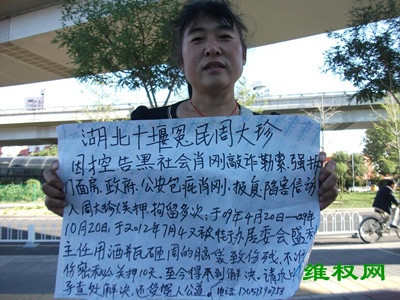 湖北十堰冤民周大珍
因控告黑社会肖刚敲诈勒索,强
门面房、政府、公安包庇肖刚、报复陷害信访
人周大珍(关押、拘留多次;于09年4月20日—09年
10月20日;于2012年7月4又被 办居委会盛
主任用酒并瓦砸周的脑袋致伤残、不
伤害 关押10天。至今得不到解决。请
查处解决、还受冤人公道。电话
维权网